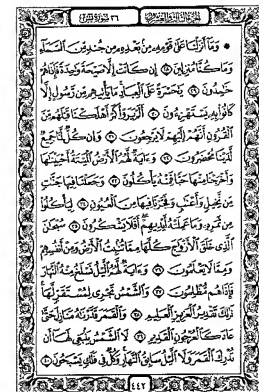 الجزء الثالث والعشرون سورة يس ٣٦
وَمَا أَنزَلْنَا عَلَىٰ قَوْمِهِ مِنْ بَعْدِهِ مِن جُندٍ مِّنَ السَّمَاءِ
وَمَا كُنَّا مُنزِلِينَ ٢٨ إِن كَانَتْ إِلَّا صَيْحَةً وَاحِدَةً فَإِذَا هُمْ
خَامِدُونَ ٢٩ يَا حَسْرَةً عَلَى الْعِبَادِ مَا يَأْتِيهِم مِّن رَّسُولٍ إِلَّا
كَانُوا بِهِ يَسْتَهْزِءُونَ ٣٠ أَلَمْ يَرَوْا كَمْ أَهْلَكْنَا قَبْلَهُم مِّنَ
الْقُرُونِ أَنَّهُمْ إِلَيْهِمْ لَا يَرْجِعُونَ ٣١ وَإِن كُلٌّ لَّمَّا جَمِيعٌ
لَّدَيْنَا مُحْضَرُونَ ٣٢ وَآيَةٌ لَّهُمُ الْأَرْضُ الْمَيْتَةُ أَحْيَيْنَاهَا
وَأَخْرَجْنَا مِنْهَا حَبًّا فَمِنْهُ يَأْكُلُونَ ٣٣ وَجَعَلْنَا فِيهَا جَنَّاتٍ
مِّن نَّخِيلٍ وَأَعْنَابٍ وَفَجَّرْنَا فِيهَا مِنَ الْعُيُونِ ٣٤ لِيَأْكُلُوا
مِن ثَمَرِهِ وَمَا عَمِلَتْهُ أَيْدِيهِمْ أَفَلَا يَشْكُرُونَ ٣٥ سُبْحَانَ
الَّذِي خَلَقَ الْأَزْوَاجَ كُلَّهَا مِمَّا تُنبِتُ الْأَرْضُ وَمِنْ أَنفُسِهِمْ
وَمِمَّا لَا يَعْلَمُونَ ٣٦ وَآيَةٌ لَّهُمُ اللَّيْلُ نَسْلَخُ مِنْهُ النَّهَارَ
فَإِذَا هُم مُّظْلِمُونَ ٣٧ وَالشَّمْسُ تَجْرِي لِمُسْتَقَرٍّ لَّهَا
ذَٰلِكَ تَقْدِيرُ الْعَزِيزِ الْعَلِيمِ ٣٨ وَالْقَمَرَ قَدَّرْنَاهُ مَنَازِلَ حَتَّىٰ
عَادَ كَالْعُرْجُونِ الْقَدِيمِ ٣٩ لَا الشَّمْسُ يَنبَغِي لَهَا أَن
تُدْرِكَ الْقَمَرَ وَلَا اللَّيْلُ سَابِقُ النَّهَارِ وَكُلٌّ فِي فَلَكٍ يَسْبَحُونَ ٤٠
٤٤٢